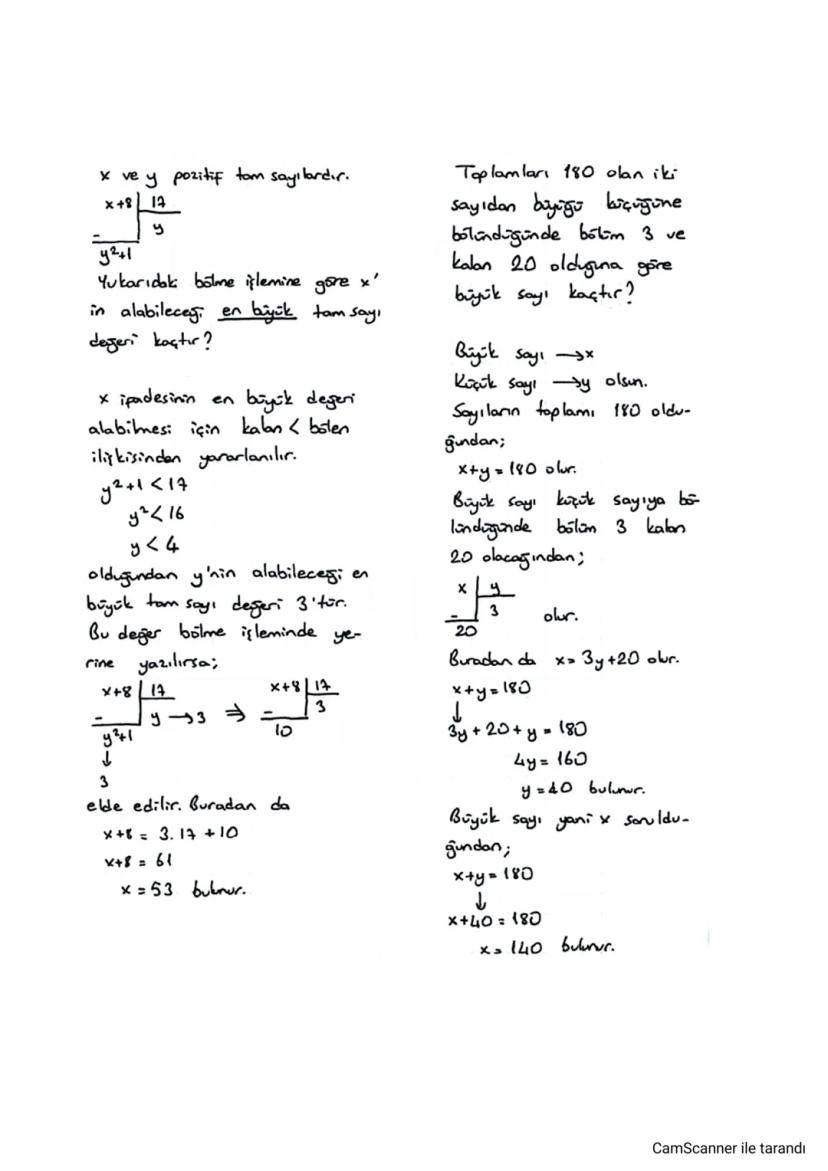 x ve y pozitif tam sayılardır.
x+8 | 17
y
y²+1
Yukarıdaki bölme işlemine göre x'
in alabileceği en büyük tam sayı
değeri kaçtır?
x ifadesinin en büyük değeri
alabilmesi için kalan < bölen
ilişkisinden yararlanılır.
y²+1 < 17
y² < 16
y < 4
olduğundan y'nin alabileceği en
büyük tam sayı değeri 3'tür.
Bu değer bölme işleminde ye-
rine yazılırsa;
x+8 | 17 ⇒ x+8 | 17
y → 3
3
y²+1
10
↓
3
elde edilir. Buradan da
x+8 = 3.17 +10
x+8 = 61
x = 53 bulunur.
Toplamları 180 olan iki
sayıdan büyüğü küçüğüne
bölündüğünde bölüm 3 ve
kalan 20 olduğuna göre
büyük sayı kaçtır?
Büyük sayı → x
Küçük sayı → y olsun.
Sayıların toplamı 180 oldu-
ğundan;
x+y = 180 olur.
Büyük sayı küçük sayıya bö-
lündüğünde bölüm 3 kalan
20 olacağından;
x | y
3
olur.
20
Buradan da x = 3y+20 olur.
x+y = 180
↓
3y + 20 + y = 180
4y = 160
y = 40 bulunur.
Büyük sayı yani x soruldu-
ğundan;
x+y = 180
↓
x+40 = 180
x = 140 bulunur.
CamScanner ile tarandı